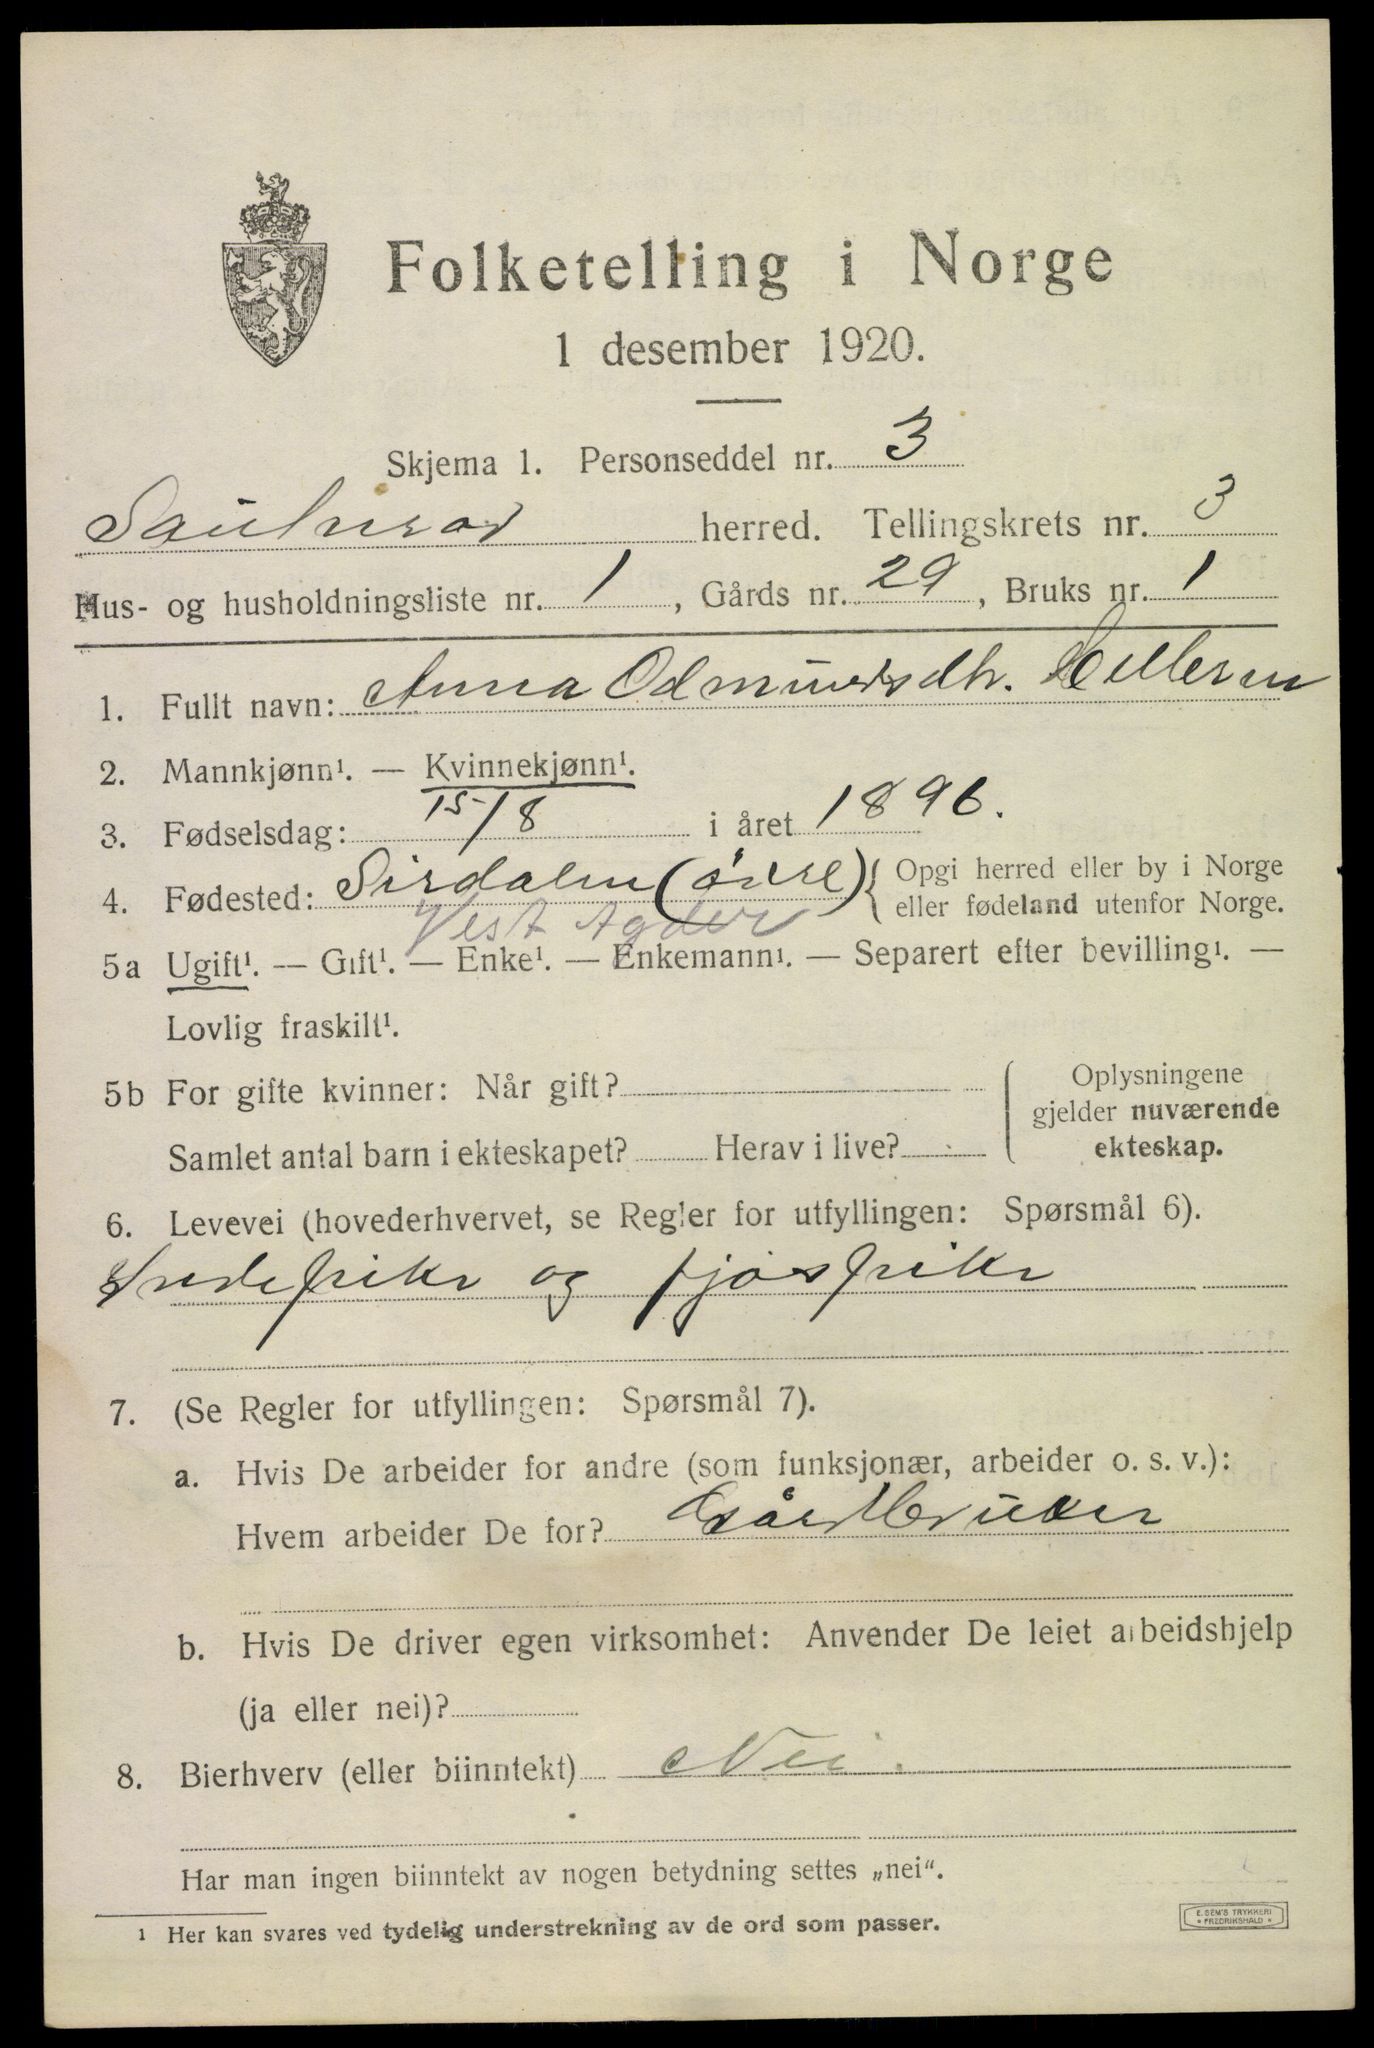 Folketelling i Norge
1 desember 1920.
Skjema 1. Personseddel nr. 3
Sauherad herred. Tellingskrets nr. 3
Hus- og husholdningsliste nr. 1, Gårds nr. 29, Bruks nr. 1
1. Fullt navn: Anna Odmundsdtr. Helleren
2. Mannkjønn¹. — Kvinnekjønn¹.
3. Fødselsdag: 15/8 i året 1896.
4. Fødested: Sirdalen (övre) { Opgi herred eller by i Norge
eller fødeland utenfor Norge.
Vest Agder
5a Ugift¹. — Gift¹. — Enke¹. — Enkemann¹. — Separert efter bevilling¹. —
Lovlig fraskilt¹.
5b For gifte kvinner: Når gift?
Samlet antal barn i ekteskapet? Herav i live?
Oplysningene
gjelder nuværende
ekteskap.
6. Levevei (hovederhvervet, se Regler for utfyllingen: Spørsmål 6).
og fjøs
7. (Se Regler for utfyllingen: Spørsmål 7).
a. Hvis De arbeider for andre (som funksjonær, arbeider o. s. v.):
Hvem arbeider De for? Gårdbruker
b. Hvis De driver egen virksomhet: Anvender De leiet arbeidshjelp
(ja eller nei)?
8. Bierhverv (eller biinntekt) Nei.
Har man ingen biinntekt av nogen betydning settes „nei“.
¹ Her kan svares ved tydelig understrekning av de ord som passer.
E. SEM'S TRYKKERI
* FREDRIKSHALD *